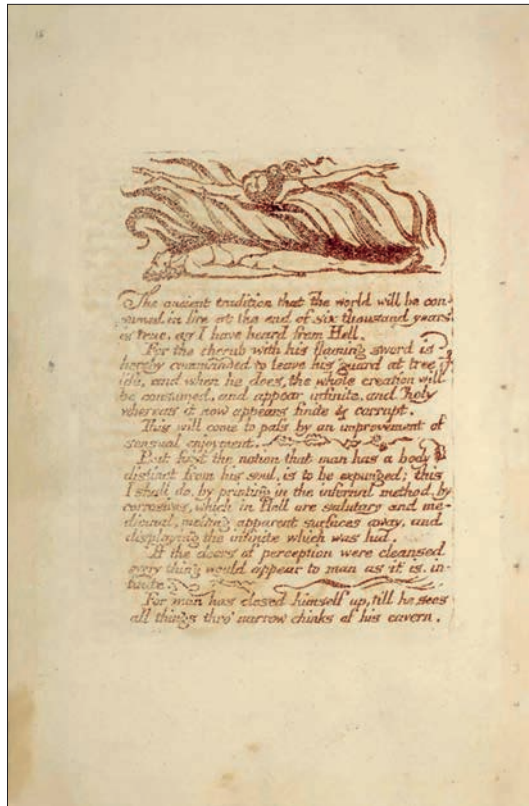 The ancient tradition that the world will be con-
sumed in fire at the end of six thousand years
is true, as I have heard from Hell.
For the cherub with his flaming sword is
hereby commanded to leave his guard at tree of
life, and when he does, the whole creation will
be consumed, and appear infinite, and holy
whereas it now appears finite & corrupt.
This will come to paſs by an improvement of
sensual enjoyment.
But first the notion that man has a body
distinct from his soul, is to be expunged; this
I shall do, by printing in the infernal method, by
corrosives, which in Hell are salutary and me-
dicinal, melting apparent surfaces away, and
displaying the infinite which was hid.
If the doors of perception were cleansed
every thing would appear to man as it is, in-
finite.
For man has closed himself up, till he sees
all things thro' narrow chinks of his cavern.